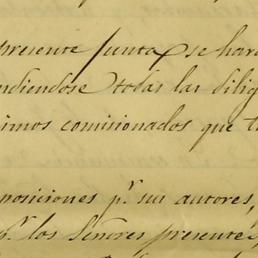 presente Junta se hará
ndiendose todas las dilig
simos comisionados que t
posiciones pr. sus autores,
pr. los Señores presente,